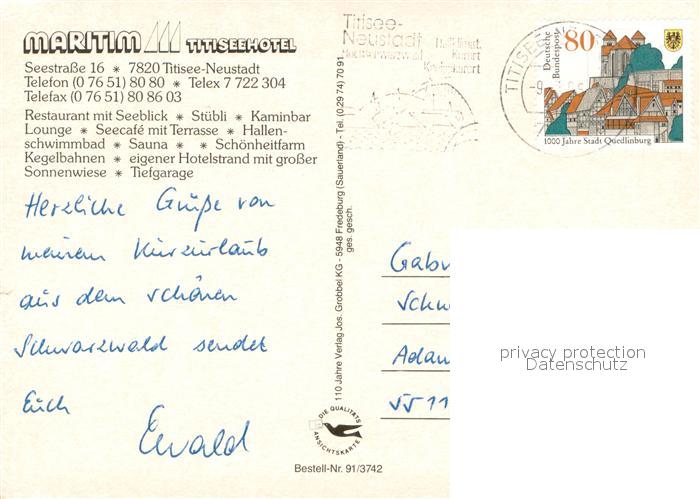 MARITIM TITISEEHOTEL
Seestraße 16 * 7820 Titisee-Neustadt
Telefon (0 76 51) 80 80 * Telex 7 722 304
Telefax (0 76 51) 80 86 03
Restaurant mit Seeblick * Stübli * Kaminbar
Lounge * Seecafé mit Terrasse * Hallen-
schwimmbad * Sauna * * Schönheitfarm
Kegelbahnen * eigener Hotelstrand mit großer
Sonnenwiese * Tiefgarage
Herzliche Grüße von
meinem Kurzurlaub
aus dem schönen
Schwarzwald sendet
Euch
Ewald
110 Jahre Verlag Jos. Grobbel KG - 5948 Fredeburg (Sauerland) - Tel. (0 29 74) 70 91
ges. gesch.
DIE QUALITÄTS
ANSICHTSKARTE
Bestell-Nr. 91/3742
Titisee-
Neustadt
Hochschwarzwald
Heilklimat.
Kurort
Kneippkurort
TITISEE
80
Deutsche
Bundespost
1000 Jahre Stadt Quedlinburg
Gabr
Schw
Adam
5511
privacy protection
Datenschutz